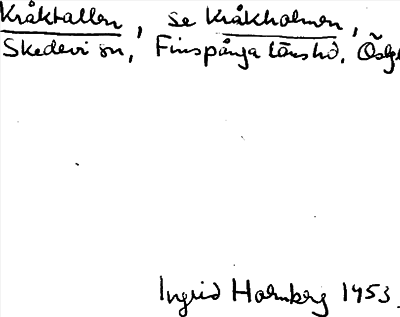 Kråktallen, se Kråkholmen,
Skedevi sn, Finspånga länshd, Östg
Ingrid Holmberg 1953.